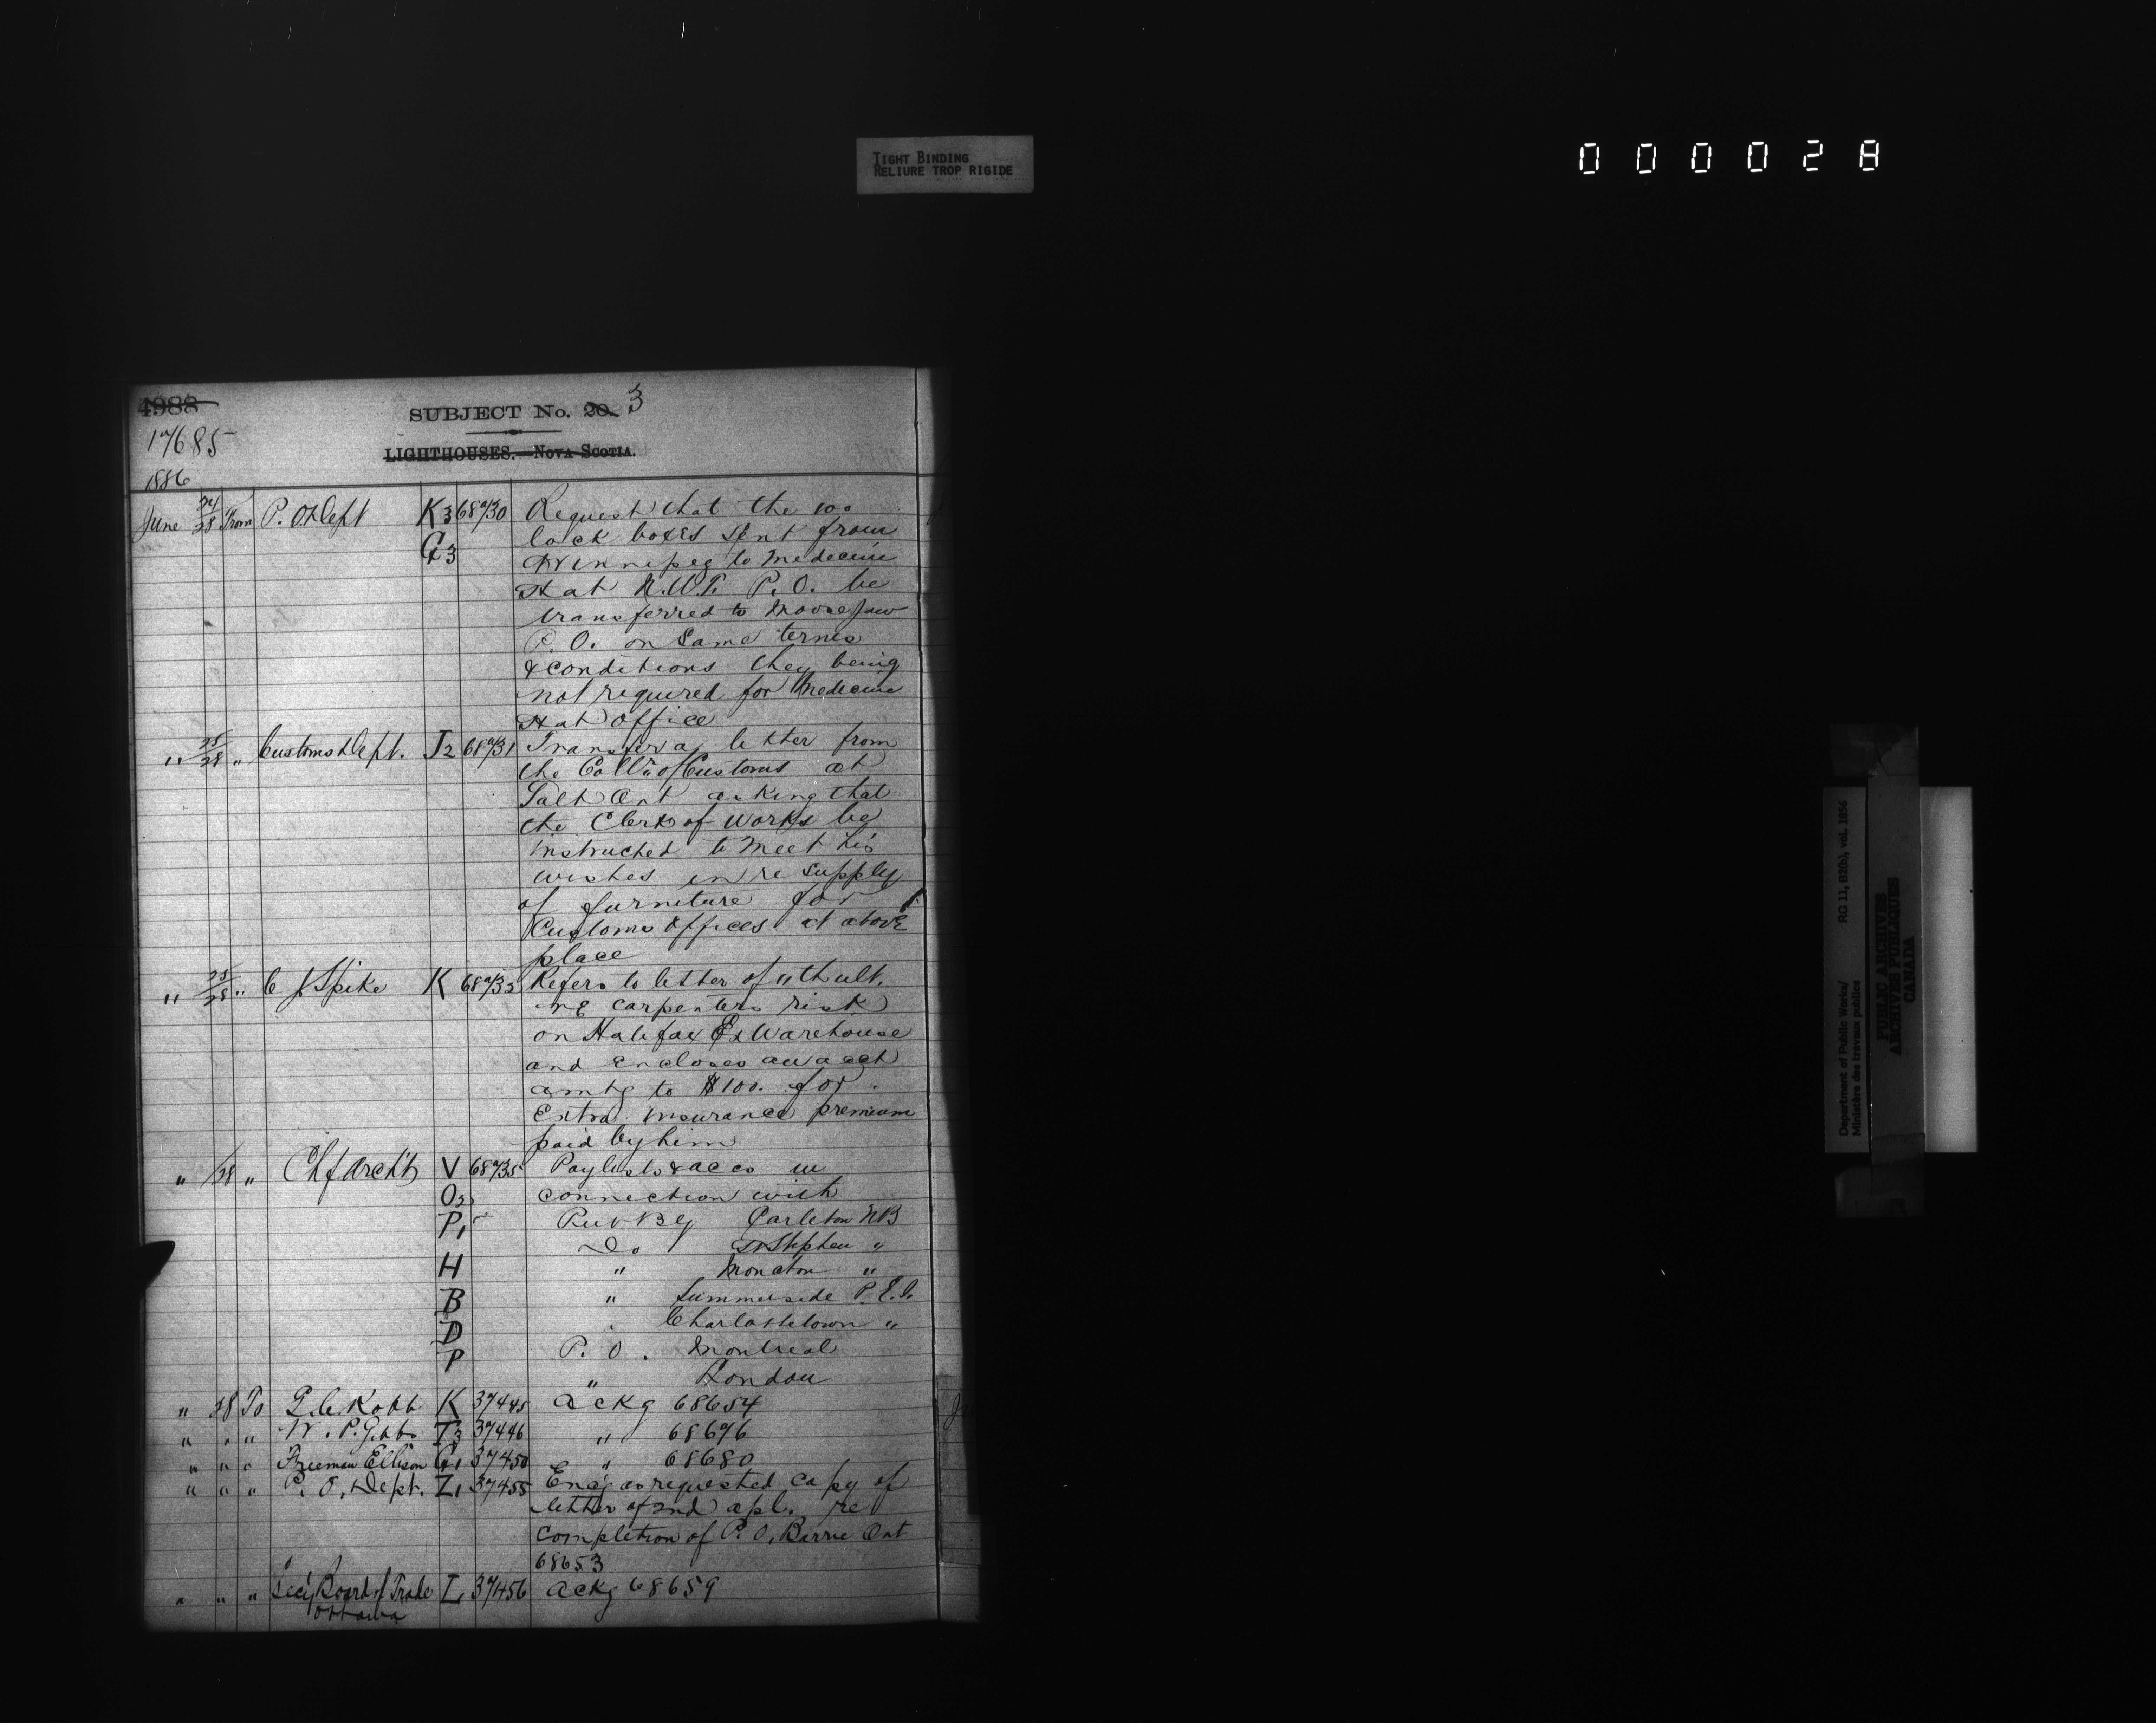 TIGHT BINDING
RELIURE TROP RIGIDE
000028
4988
SUBJECT No. 20. 3
17685
LIGHTHOUSES.—NOVA SCOTIA.
1886
June 24/28 From P. O. Dept K3 68730 Request that the 100
G3 lock boxes sent from
Winnipeg to Medecine
Hat N.W.T. P.O. be
transferred to Moose Jaw
P.O. on same terms
& conditions they being
not required for Medecine
Hat office
" 25/28 " Customs Dept. J2 68731 Transfer a letter from
the Coll'r of Customs at
Galt Ont asking that
the Clerk of Works be
instructed to meet his
wishes in re supply
of furniture for
Customs Offices at above
place
" 25/28 " C J Spike K 68733 Refers to letter of 11th ult.
re carpenters risk
on Halifax Ex Warehouse
and encloses an acct
amtg to $100. for
Extra insurance premium
paid by him
" /28 " Chf Archt V 68735 Paylists & accs in
O2 connection with
P1 Pub Bg Carleton NB
Do St Stephen "
H " Moncton "
B " Summerside P.E.I.
D Charlottetown "
P P.O. Montreal
" London
" 28 To Robb K 37445 Ackg 68654
" " " W. P. Gibbs T3 37446 " 68676
" " " Freeman Ellison G1 37450 " 68680
" " " P. O. Dept. Z1 37455 Encg as requested copy of
letter of 2nd apl. re
completion of P.O. Barrie Ont
68653
" " " Secy Board of Trade L 37456 Ackg 68659
Ottawa
Department of Public Works/ RG 11, B2(b), vol. 1856
Ministère des travaux publics
PUBLIC ARCHIVES
ARCHIVES PUBLIQUES
CANADA